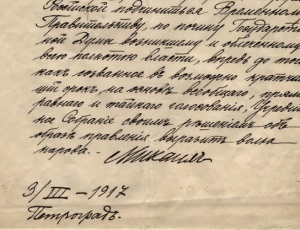 Россійской подчиниться Временному
Правительству, по почину Государствен
ной Думы возникшему и облеченному
всею полнотою власти, впредь до того
какъ созванное въ возможно кратчай
шій срокъ, на основѣ всеобщаго, прям
равнаго и тайнаго голосованія, Учреди
ное Собраніе своимъ рѣшеніемъ объ
образѣ правленія выразитъ волю
народа.
Михаилъ
3/III – 1917
Петроградъ.